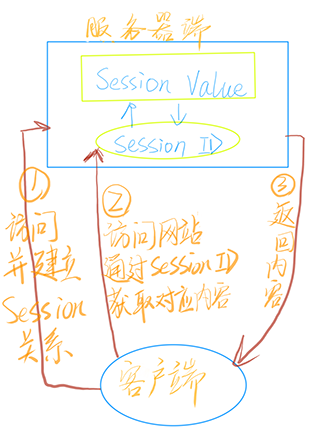 服务器端
Session Value
Session ID
①
访问
并建立
Session
关系
②
访问网站
通过Session ID
获取对应内容
③
返回内容
客户端